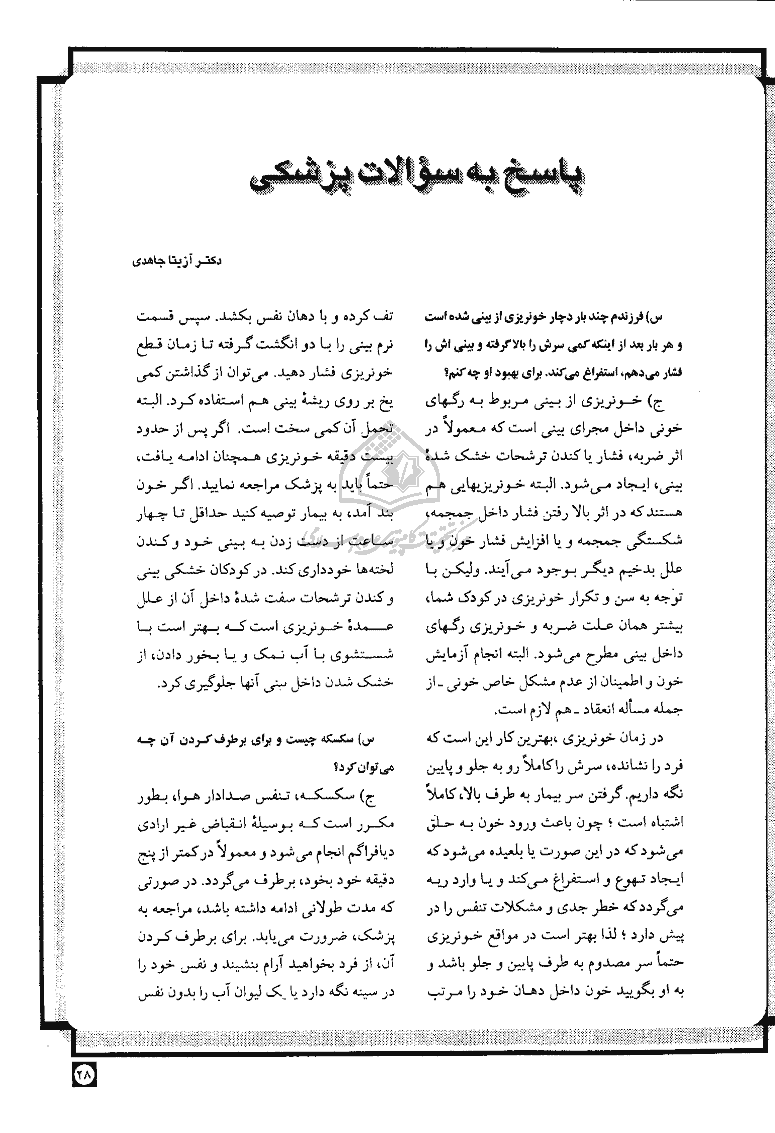 پاسخ به سؤالات پزشکی
دکتر آزیتا جاهدی
س) فرزندم چند بار دچار خونریزی از بینی شده است
و هر بار بعد از اینکه کمی سرش را بالا گرفته و بینی اش را
فشار می‌دهم، استفراغ می‌کند. برای بهبود او چه کنم؟
ج) خونریزی از بینی مربوط به رگهای
خونی داخل مجرای بینی است که معمولاً در
اثر ضربه، فشار یا کندن ترشحات خشک شدهٔ
بینی، ایجاد می‌شود. البته خونریزیهایی هم
هستند که در اثر بالا رفتن فشار داخل جمجمه،
شکستگی جمجمه و یا افزایش فشار خون و یا
علل بدخیم دیگر بوجود می‌آیند. ولیکن با
توجه به سن و تکرار خونریزی در کودک شما،
بیشتر همان علت ضربه و خونریزی رگهای
داخل بینی مطرح می‌شود. البته انجام آزمایش
خون و اطمینان از عدم مشکل خاص خونی ـ از
جمله مسأله انعقاد ـ هم لازم است.
در زمان خونریزی ،بهترین کار این است که
فرد را نشانده، سرش را کاملاً رو به جلو و پایین
نگه داریم. گرفتن سر بیمار به طرف بالا، کاملاً
اشتباه است ؛ چون باعث ورود خون به حلق
می‌شود که در این صورت یا بلعیده می‌شود که
ایجاد تهوع و استفراغ می‌کند و یا وارد ریه
می‌گردد که خطر جدی و مشکلات تنفس را در
پیش دارد ؛ لذا بهتر است در مواقع خونریزی
حتماً سر مصدوم به طرف پایین و جلو باشد و
به او بگویید خون داخل دهان خود را مرتب
تف کرده و با دهان نفس بکشد. سپس قسمت
نرم بینی را با دو انگشت گرفته تا زمان قطع
خونریزی فشار دهید. می‌توان از گذاشتن کمی
یخ بر روی ریشهٔ بینی هم استفاده کرد. البته
تحمل آن کمی سخت است. اگر پس از حدود
بیست دقیقه خونریزی همچنان ادامه یافت،
حتماً باید به پزشک مراجعه نمایید. اگر خون
بند آمد، به بیمار توصیه کنید حداقل تا چهار
ساعت از دست زدن به بینی خود و کندن
لخته‌ها خودداری کند. در کودکان خشکی بینی
و کندن ترشحات سفت شدهٔ داخل آن از علل
عمدهٔ خونریزی است که بهتر است با
شستشوی با آب نمک و یا بخور دادن، از
خشک شدن داخل بینی آنها جلوگیری کرد.
س) سکسکه چیست و برای برطرف کردن آن چه
می‌توان کرد؟
ج) سکسکه، تنفس صدادار هوا، بطور
مکرر است که بوسیلهٔ انقباض غیر ارادی
دیافراگم انجام می‌شود و معمولاً در کمتر از پنج
دقیقه خود بخود، برطرف می‌گردد. در صورتی
که مدت طولانی ادامه داشته باشد، مراجعه به
پزشک، ضرورت می‌یابد. برای برطرف کردن
آن، از فرد بخواهید آرام بنشیند و نفس خود را
در سینه نگه دارد یا یک لیوان آب را بدون نفس
۲۸